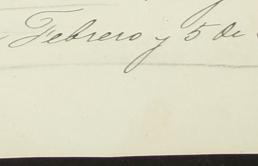 Febrero y 5 de